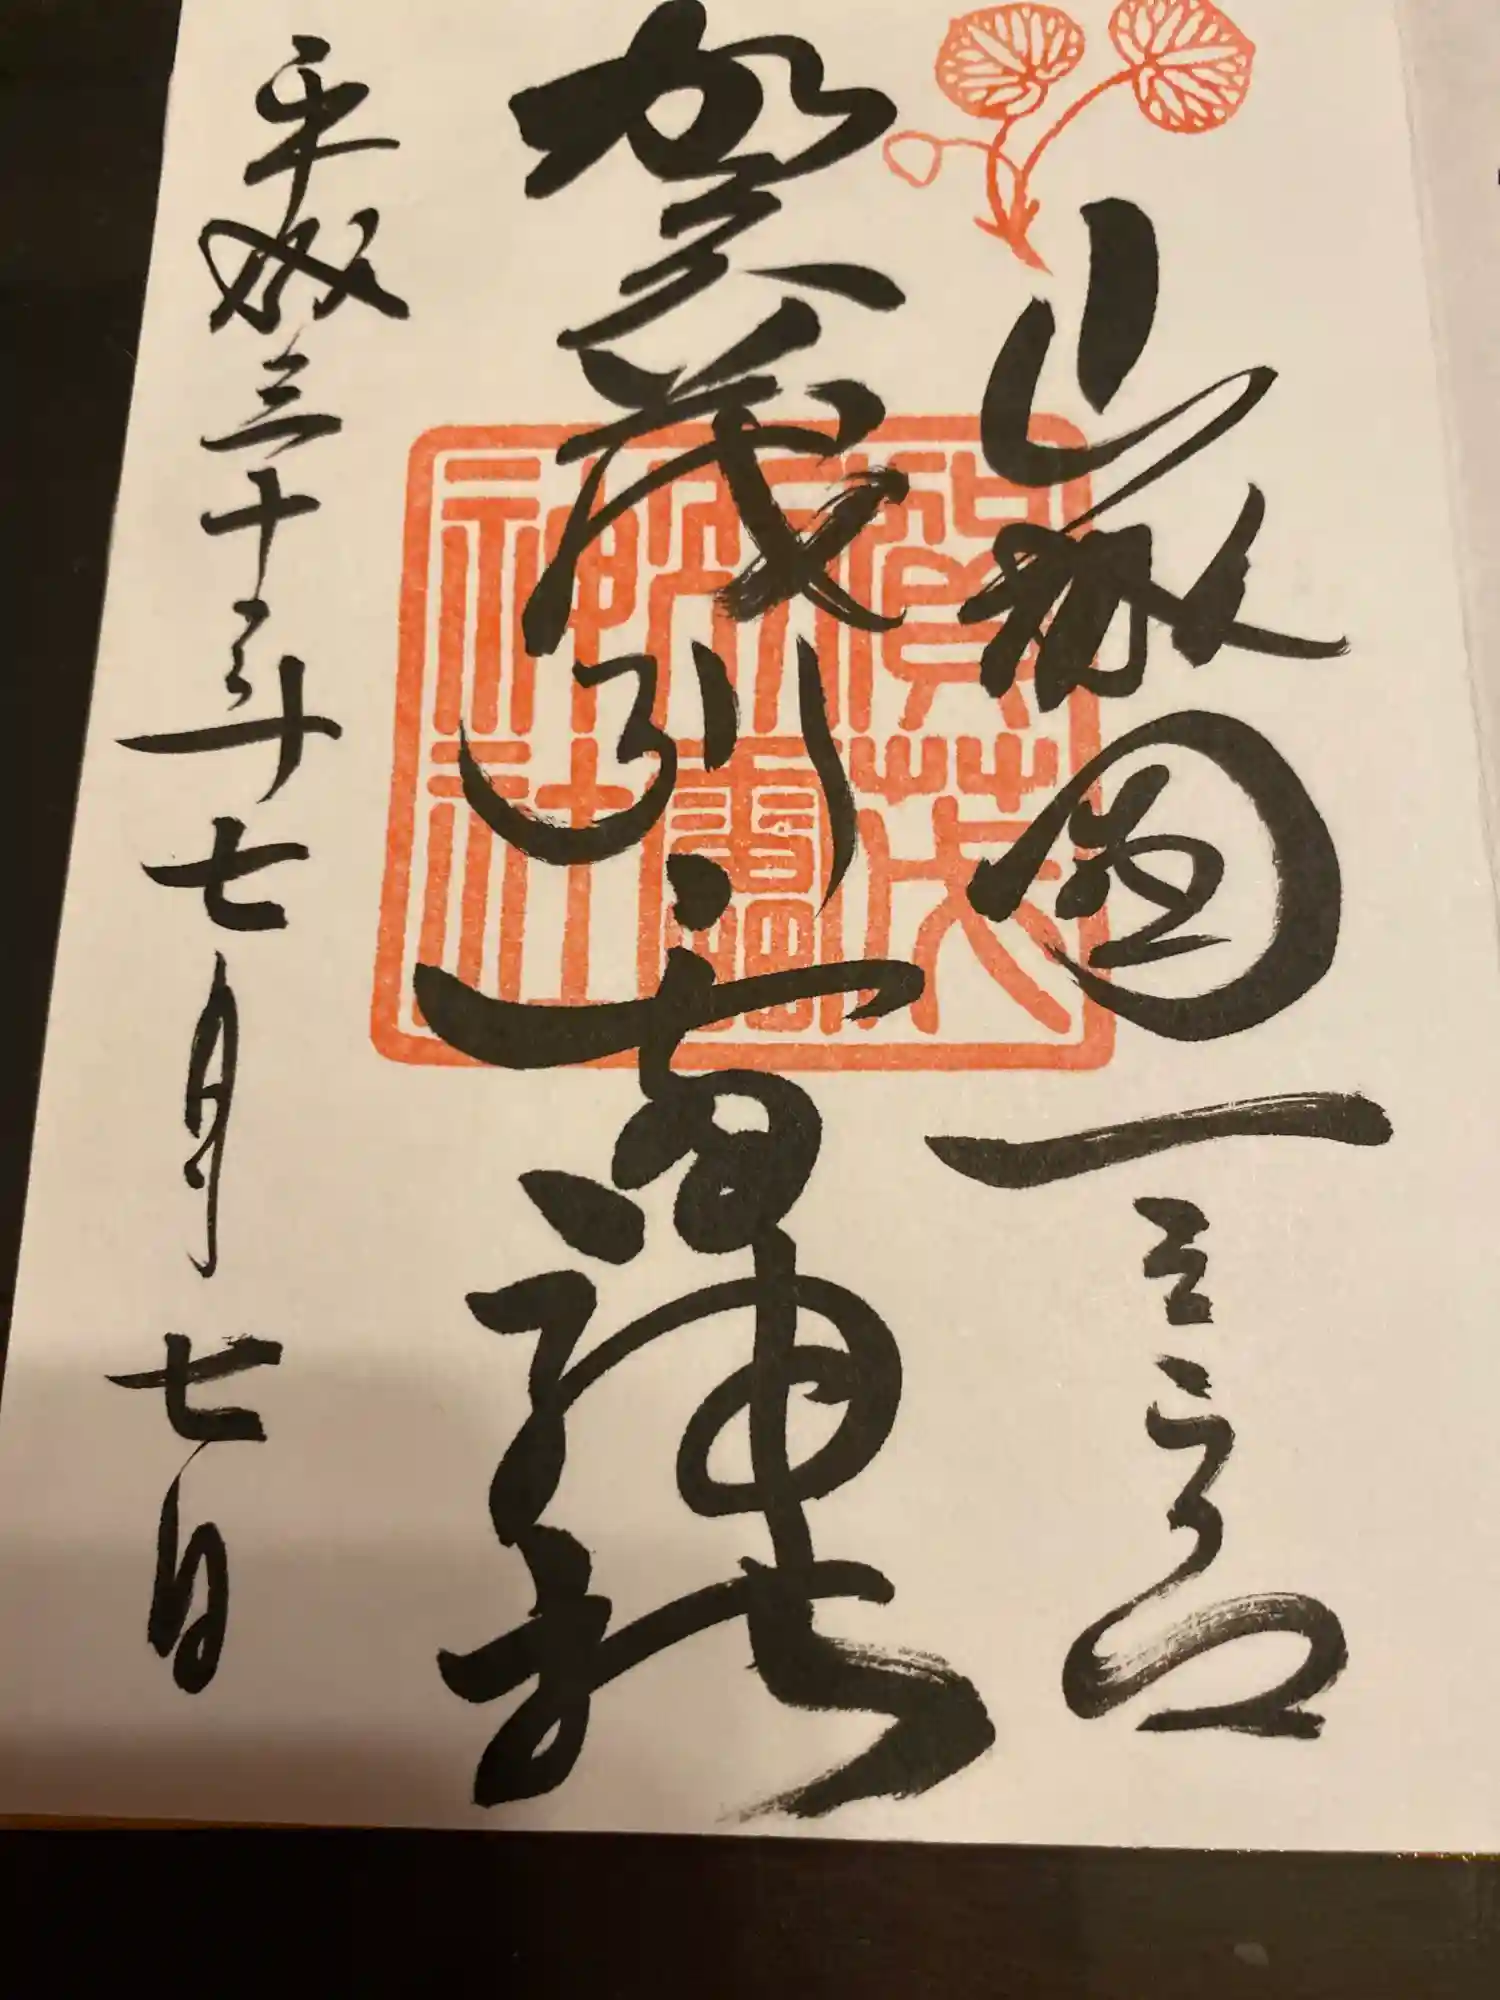 山城國一之宮
賀茂別雷神社
平成三十年七月七日
賀茂
別雷
神社